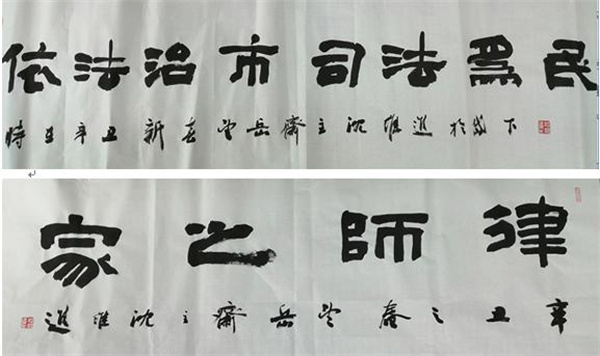 依法治市司法爲民
時在辛丑新春望岳齋主沈維進於岱下
律師之家
辛丑之春望岳齋主沈維進